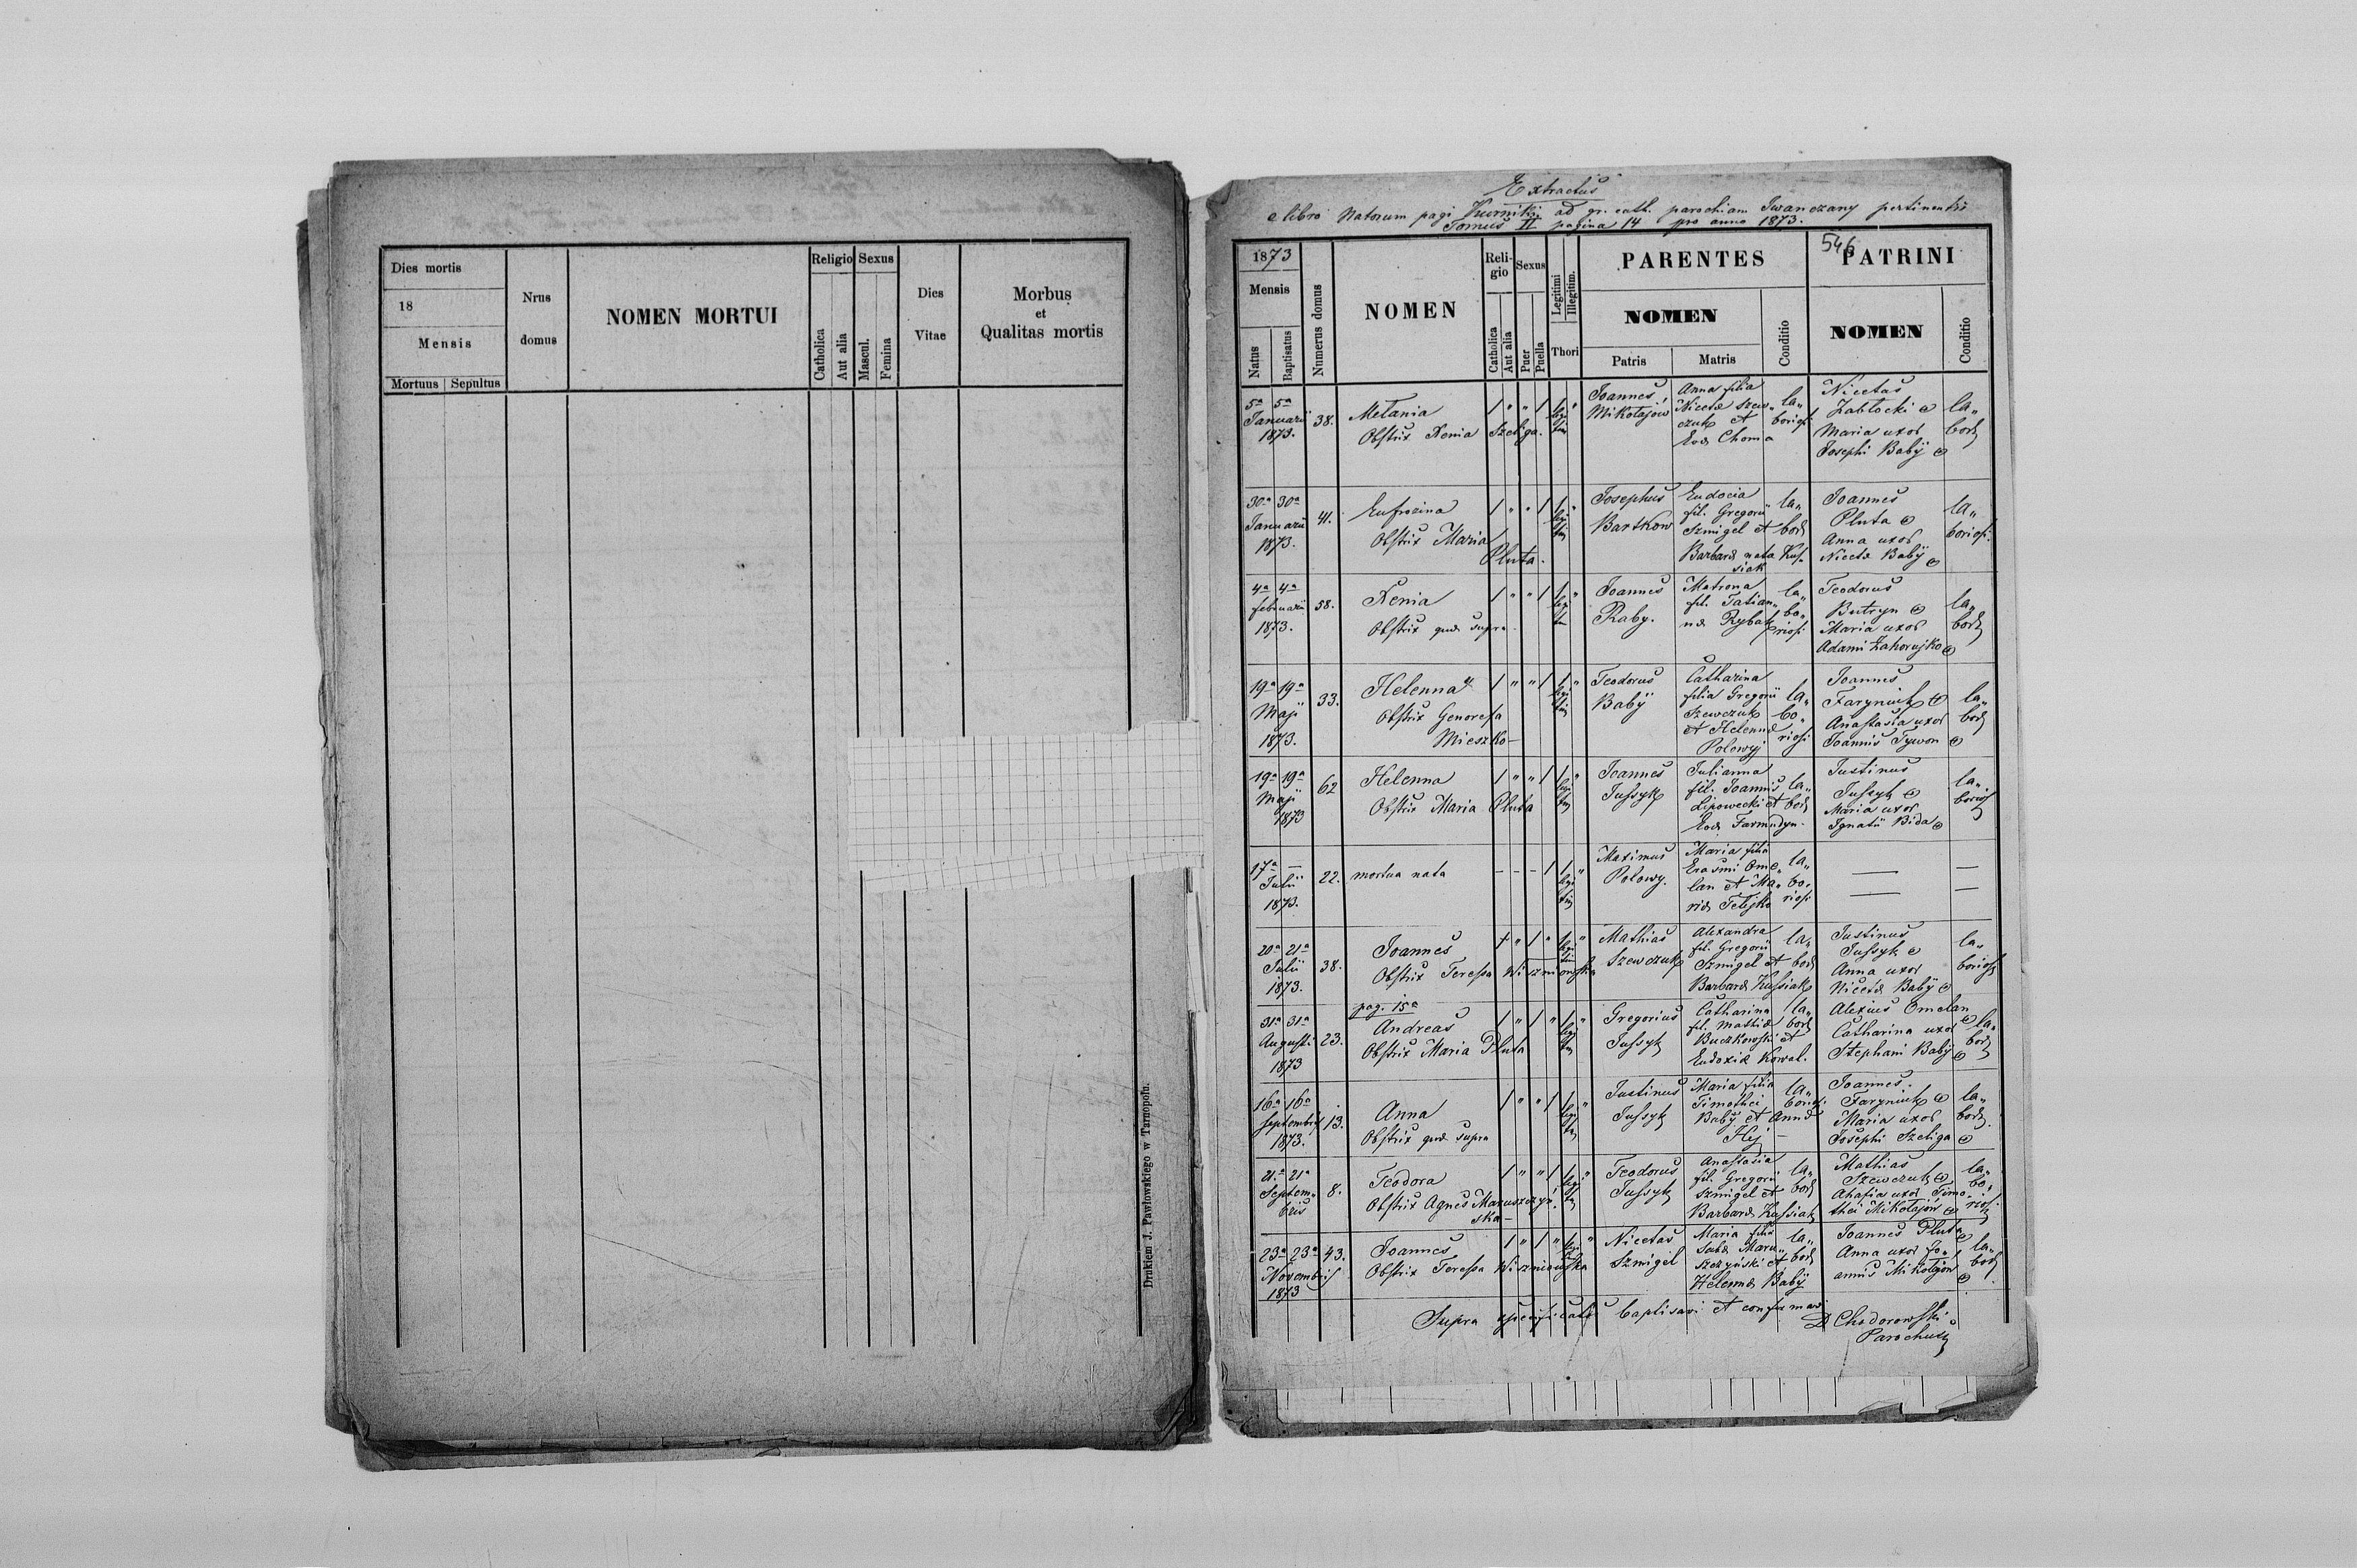 Dies mortis
18
Mensis
Mortuus Sepultus
Nrus
domus
NOMEN MORTUI
Religio Sexus
Catholica
Aut alia
Mascul.
Femina
Dies
Vitae
Morbus
et
Qualitas mortis
Drukiem J. Pawłowskiego w Tarnopolu.
Extractus
e libro Natorum pagi Kurniki ad gr. cath. parochiam Iwanczany pertinentis
Tomus II pagina 14 pro anno 1873.
546
1873
Mensis
Natus
Baptisatus
Numerus domus
NOMEN
Religio
Sexus
Catholica
Aut alia
Puer
Puella
Legitimi
Illegitim.
Thori
PARENTES
NOMEN
Patris
Matris
Conditio
PATRINI
NOMEN
Conditio
5a 5a
Januarii
1873.
38.
Melania
Obstrix Xenia Szeliga.
Joannes
Mikołajow
Anna filia
Nicetae Szew„
czuk et
Evae Choma
la„
boriosi
Nicetas
Zabłocki
Maria uxor
Josephi Babÿ
la„
bor
30a 30a
Januarii
1873.
41.
Eufrozina
Obstrix Maria
Pluta.
Josephus
Bartkow
Eudocia
fil. Gregorii
Szmigel et
Barbarae nata Kus„
siak
la„
bor
Joannes
Pluta
Anna uxor
Nicetae Babÿ
la„
boriosi.
4a 4a
februarii
1873.
58.
Xenia
Obstrix quae supra
Joannes
Raby.
Matrona
fil. Tatian„
nae Rybak
la„
bo„
riosi
Teodorus
Butryn
Maria uxor
Adami Zahorujko
la„
bor
19a 19a
Maji
1873.
33.
Helenna
Obstrix Genoressa
Mieszko
Teodorus
Babÿ
Catharina
filia Gregorii
Szewczuk
et Helennae
Polowyj
la„
bo„
riosi
Joannes
Faryniuk
Anastasia uxor
Joannis Tywon
la„
bor
19a 19a
Maji
1873
62
Helenna
Obstrix Maria Pluta
Joannes
Jussyk
Julianna
fil. Joannis
Lipowecki et
Evae Farmudyn.
la„
bor
Justinus
Jussyk
Maria uxor
Ignatii Bida
la„
borios
17a —
Julii
1873.
22.
mortua nata
Maximus
Polowy.
Maria filia
Erasmi Ome„
lan et Ma„
riae Telijko
la„
bo„
riosi
20a 21a
Julii
1873.
38.
Joannes
Obstrix Teressa Wiszniowska
Mathias
Szewczuk
Alexandra
fil. Gregorii
Szmigel et
Barbarae Kussiak
la„
bor
Justinus
Jussyk
Anna uxor
Nicetae Babÿ
la„
borios
pag. 15a
31a 31a
Augusti
1873
23.
Andreas
Obstrix Maria Pluta
Gregorius
Jussyk
Catharina
fil. Mathiae
Buczkowski et
Eudoxiae Kowal.
la„
bor
Alexius Omelan
Catharina uxor
Stephani Babÿ
la„
bor
16a 16a
Septembris
1873.
13.
Anna
Obstrix quae supra
Justinus
Jussyk
Maria filia
Timothei
Babÿ et Annae
Hej
la„
boriosi
Joannes
Faryniuk
Maria uxor
Josephi Szeliga
la„
bor.
21a 21a
Septem„
bris
8.
Teodora
Obstrix Agnes Maruszczyń„
ska
Teodorus
Jussyk
Anastasia
fil. Gregorii
Szmigel et
Barbarae Kussiak
la„
bor
Mathias
Szewczuk
Ahafia uxor Timo„
thei Mikołajów
la„
bo„
rios.
23a 23a
Novembris
1873
43.
Joannes
Obstrix Teressa Wiszniowska
Nicetas
Szmigel
Maria filia
Sabae Maru„
szczyński et
Helennae Babÿ
la„
bor
Joannes Pluta
Anna uxor Jo„
annis Mikołajow
la„
bor
Supra specificatos baptisavi et confirmavi
D Chodorowski
Parochus